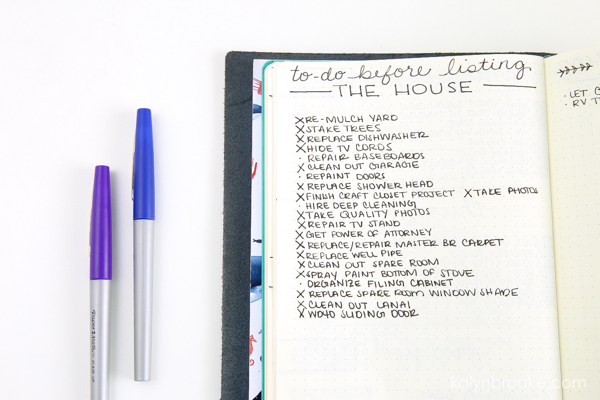 to-do before listing
THE HOUSE
X RE-MULCH YARD
X STAKE TREES
X REPLACE DISHWASHER
X HIDE TV CORDS
· REPAIR BASEBOARDS
X CLEAN OUT GARAGE
· REPAINT DOORS
X REPLACE SHOWER HEAD
X FINISH CRAFT CLOSET PROJECT X TAKE PHOTOS
· HIRE DEEP CLEANING
X TAKE QUALITY PHOTOS
X REPAIR TV STAND
X GET POWER OF ATTORNEY
X REPLACE/REPAIR MASTER BR CARPET
X REPLACE WELL PIPE
X CLEAN OUT SPARE ROOM
X SPRAY PAINT BOTTOM OF STOVE
· ORGANIZE FILING CABINET
X REPLACE SPARE ROOM WINDOW SHADE
X CLEAN OUT LANAI
X WD40 SLIDING DOOR
· LET
· RV
kalynbrooke.com